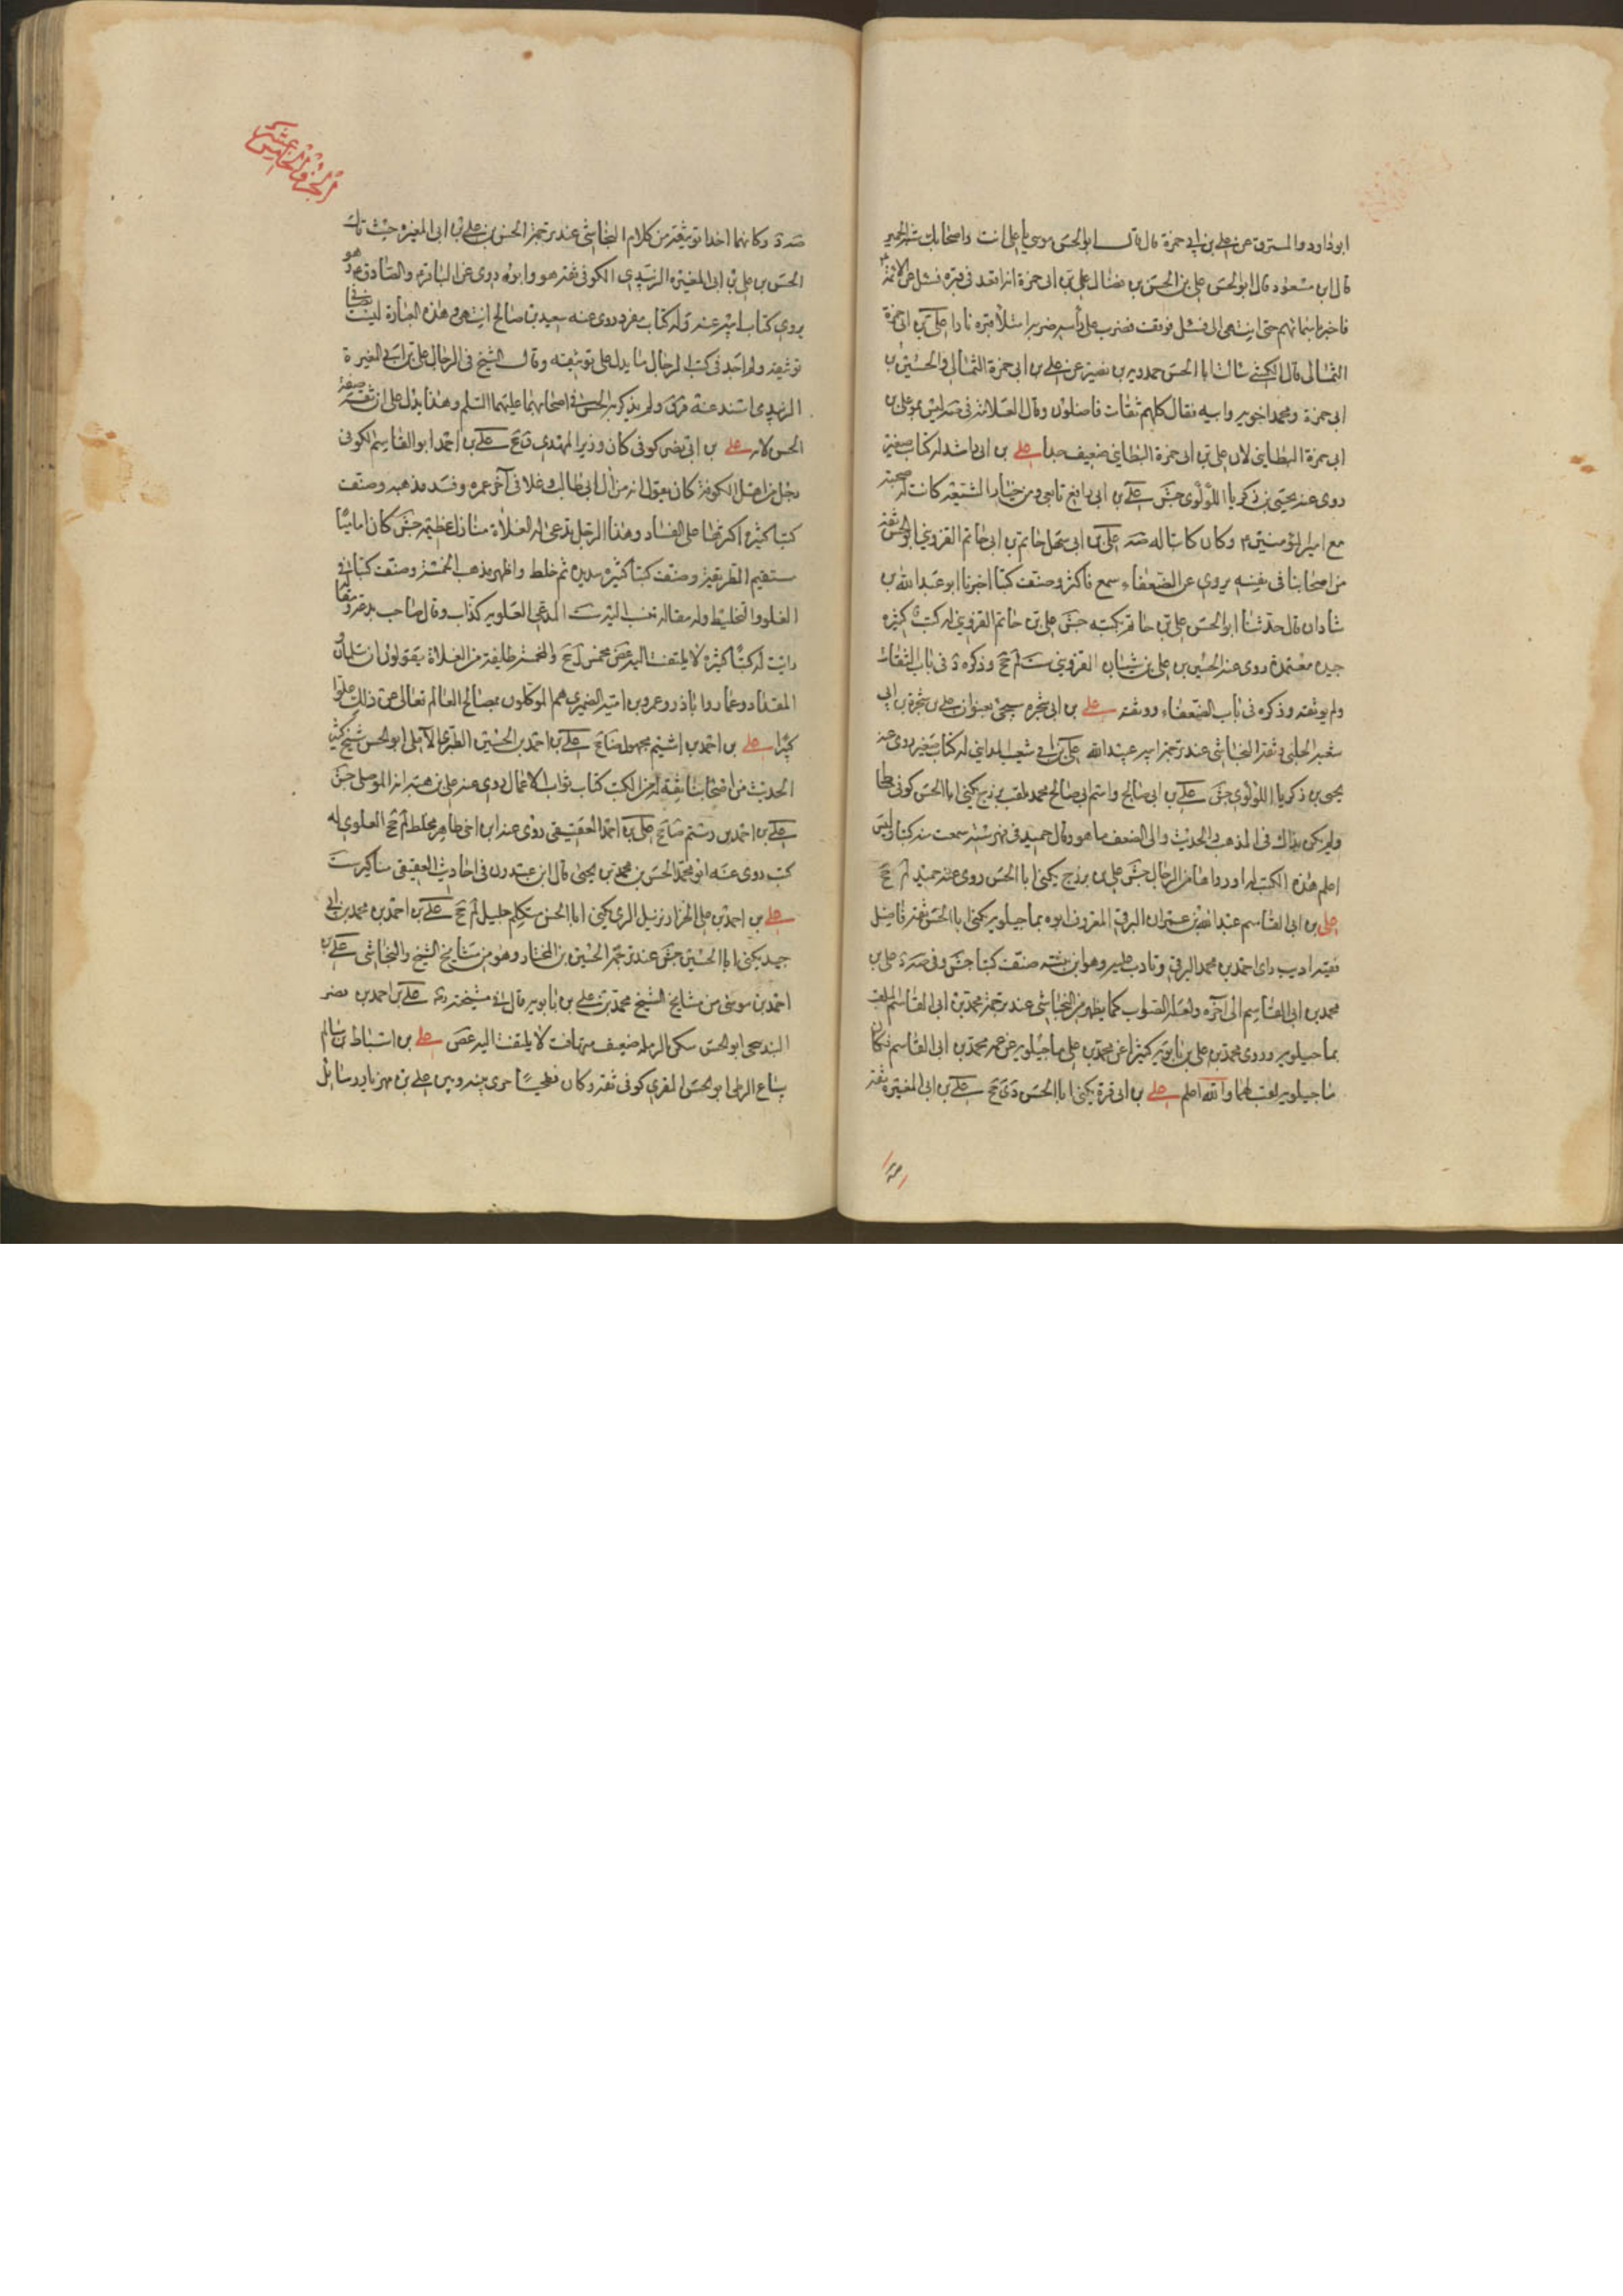 ابو داود المسترق عن علي بن ابي حمزة قال قال ابو الحسن موسى يا علي انت واصحابك شبه الحمير
قال ابن مسعود قال ابو الحسن علي بن الحسن بن فضال علي بن ابي حمزة انه اقعد في قبره فسئل عن الائمة
فاخبر باسمائهم حتى انتهى الى فسئل فوقف فضرب على راسه ضربة امتلأ قبره نارا علي بن ابي حمزة
الثمالي قال الكشي سالت ابا الحسن حمدويه بن نصير عن علي بن ابي حمزة الثمالي والحسين بن
ابي حمزة ومحمد اخويه وابيه فقال كلهم ثقات فاضلون وقال العلامة في صه ليس هو علي بن
ابي حمزة البطايني لان علي بن ابي حمزة البطايني ضعيف جدا علي بن ابي راشد له كتاب صغير
روى عنه يحيى بن زكريا اللؤلؤي جش علي بن ابي رافع تابعي من خيار الشيعة كانت له صحبة
مع امير المؤمنين وكان كاتبا له صه علي بن ابي سهل حاتم بن ابي حاتم القزويني ابو الحسن ثقة
من اصحابنا في نفسه يروي عن الضعفاء سمع فاكثر وصنف كتبا اخبرنا ابو عبد الله بن
شاذان قال حدثنا ابو الحسن علي بن حاتم بكتبه جش علي بن حاتم القزويني له كتب كثيرة
جيدة معتمدة روى عنه الحسين بن علي بن شيبان القزويني ست لم جخ وذكره د في باب الثقات
ولم يوثقه وذكره في باب الضعفاء ووثقه علي بن ابي شجره سيجئ بعنوان علي بن شجرة بن ابي
شعبه الحلبي وثقه النجاشي عند ترجمة ابيه عبد الله علي بن ابي شعبه المدايني له كتاب صغير روى عنه
يحيى بن زكريا اللؤلؤي جش علي بن ابي صالح واسم ابي صالح محمد يلقب بزرج يكنى ابا الحسن كوفي حناط
ولم يكن بذاك في المذهب والحديث والى الضعف ما هو وقال حميد في فهرسته سمعت منه كتبا وليس
اعلم هذه الكتب له او رواها من الرجال جش علي بن بزرج يكنى ابا الحسن روى عنه حميد لم جخ
علي بن ابي القاسم عبد الله بن عمران البرقي المعروف ابوه بماجيلويه يكنى ابا الحسن ثقة فاضل
فقيه اديب راى احمد بن محمد البرقي وتادب عليه وهو ابن بنته صنف كتبا جش وفي صه د علي بن
محمد بن ابي القاسم الى آخره ولعله الصواب كما يظهر من النجاشي عند ترجمة محمد بن ابي القاسم الملقب
بماجيلويه وروى محمد بن علي بن بابويه كثيرا عن محمد بن علي ماجيلويه عن عمه محمد بن ابي القاسم فكان
ماجيلويه لقب لهما والله اعلم علي بن ابي قرة يكنى ابا الحسن دي جخ علي بن ابي المغيرة ثقة
صه
الجزء الخامس عشر
صه د وكانهما اخذا توثيقه من كلام النجاشي عند ترجمة الحسن بن علي بن ابي المغيرة حيث قال
الحسن بن علي بن ابي المغيرة الزبيدي الكوفي ثقة هو وابوه روى عن الباقر والصادق ع وهو
يروي كتاب ابيه عنه وله كتاب مفرد روى عنه سعيد بن صالح انتهى وهذه العبارة ليست نصا في
توثيقه ولم اجد في كتب الرجال ما يدل على توثيقه وقال الشيخ في الرجال علي بن ابي المغيرة
الزبيدي اسند عنه ق ولم يذكر الحسن في اصحابهما عليهما السلم وهذا يدل على ان ثقة صفة
الحسن لابيه علي بن ابي نصر كوفي كان وزير المهدي ق جخ علي بن احمد ابو القاسم الكوفي
رجل من اهل الكوفة كان يقول انه من آل ابي طالب وغلا في آخر عمره وفسد مذهبه وصنف
كتبا كثيرة اكثرها على الفساد وهذا الرجل تدعى له الغلاة منازل عظيمة جش كان اماميا
مستقيم الطريقة وصنف كتبا كثيرة سديدة ثم خلط واظهر مذهب المخمسة وصنف كتبا في
الغلو والتخليط وله مقالة تنسب اليه ست المدعي العلوية كذاب وقال صاحب بدعة ومقالة
رايت له كتبا كثيرة لا يلتفت اليه غض مخمس لم جخ والمخمسة طايفة من الغلاة يقولون ان سلمان و
المقداد وعمار وابا ذر وعمرو بن امية الضمري هم الموكلون بمصالح العالم تعالى عن ذلك علوا
كبيرا علي بن احمد بن اشيم مجهول ضا جخ علي بن احمد بن الحسين الطبري الآملي ابو الحسن شيخ كثير
الحديث من اصحابنا ثقة له من الكتب كتاب ثواب الاعمال روى عنه علي بن هبة الله الموصلي جش
علي بن احمد بن رستم ضا جخ علي بن احمد العقيقي روى عنه ابن اخي طاهر مخلط لم جخ العلوي له
كتب روى عنه ابو محمد الحسن بن محمد بن يحيى قال ابن عبدون في احاديث العقيقي مناكير ست
علي بن احمد بن علي الخزاز نزيل الري يكنى ابا الحسن متكلم جليل لم جخ علي بن احمد بن محمد بن ابي
جيد يكنى ابا الحسين جش عند ترجمة الحسين بن المختار وهو من مشايخ الشيخ والنجاشي علي بن
احمد بن موسى من مشايخ الشيخ محمد بن علي بن بابويه قال في مشيخته رض علي بن احمد بن نصر
البندنيجي ابو الحسن سكن الرملة ضعيف متهافت لا يلتفت اليه غض علي بن اسباط بن سالم
بياع الزطي ابو الحسن المقري كوفي ثقة وكان فطحيا جرى بينه وبين علي بن مهزيار رسائل